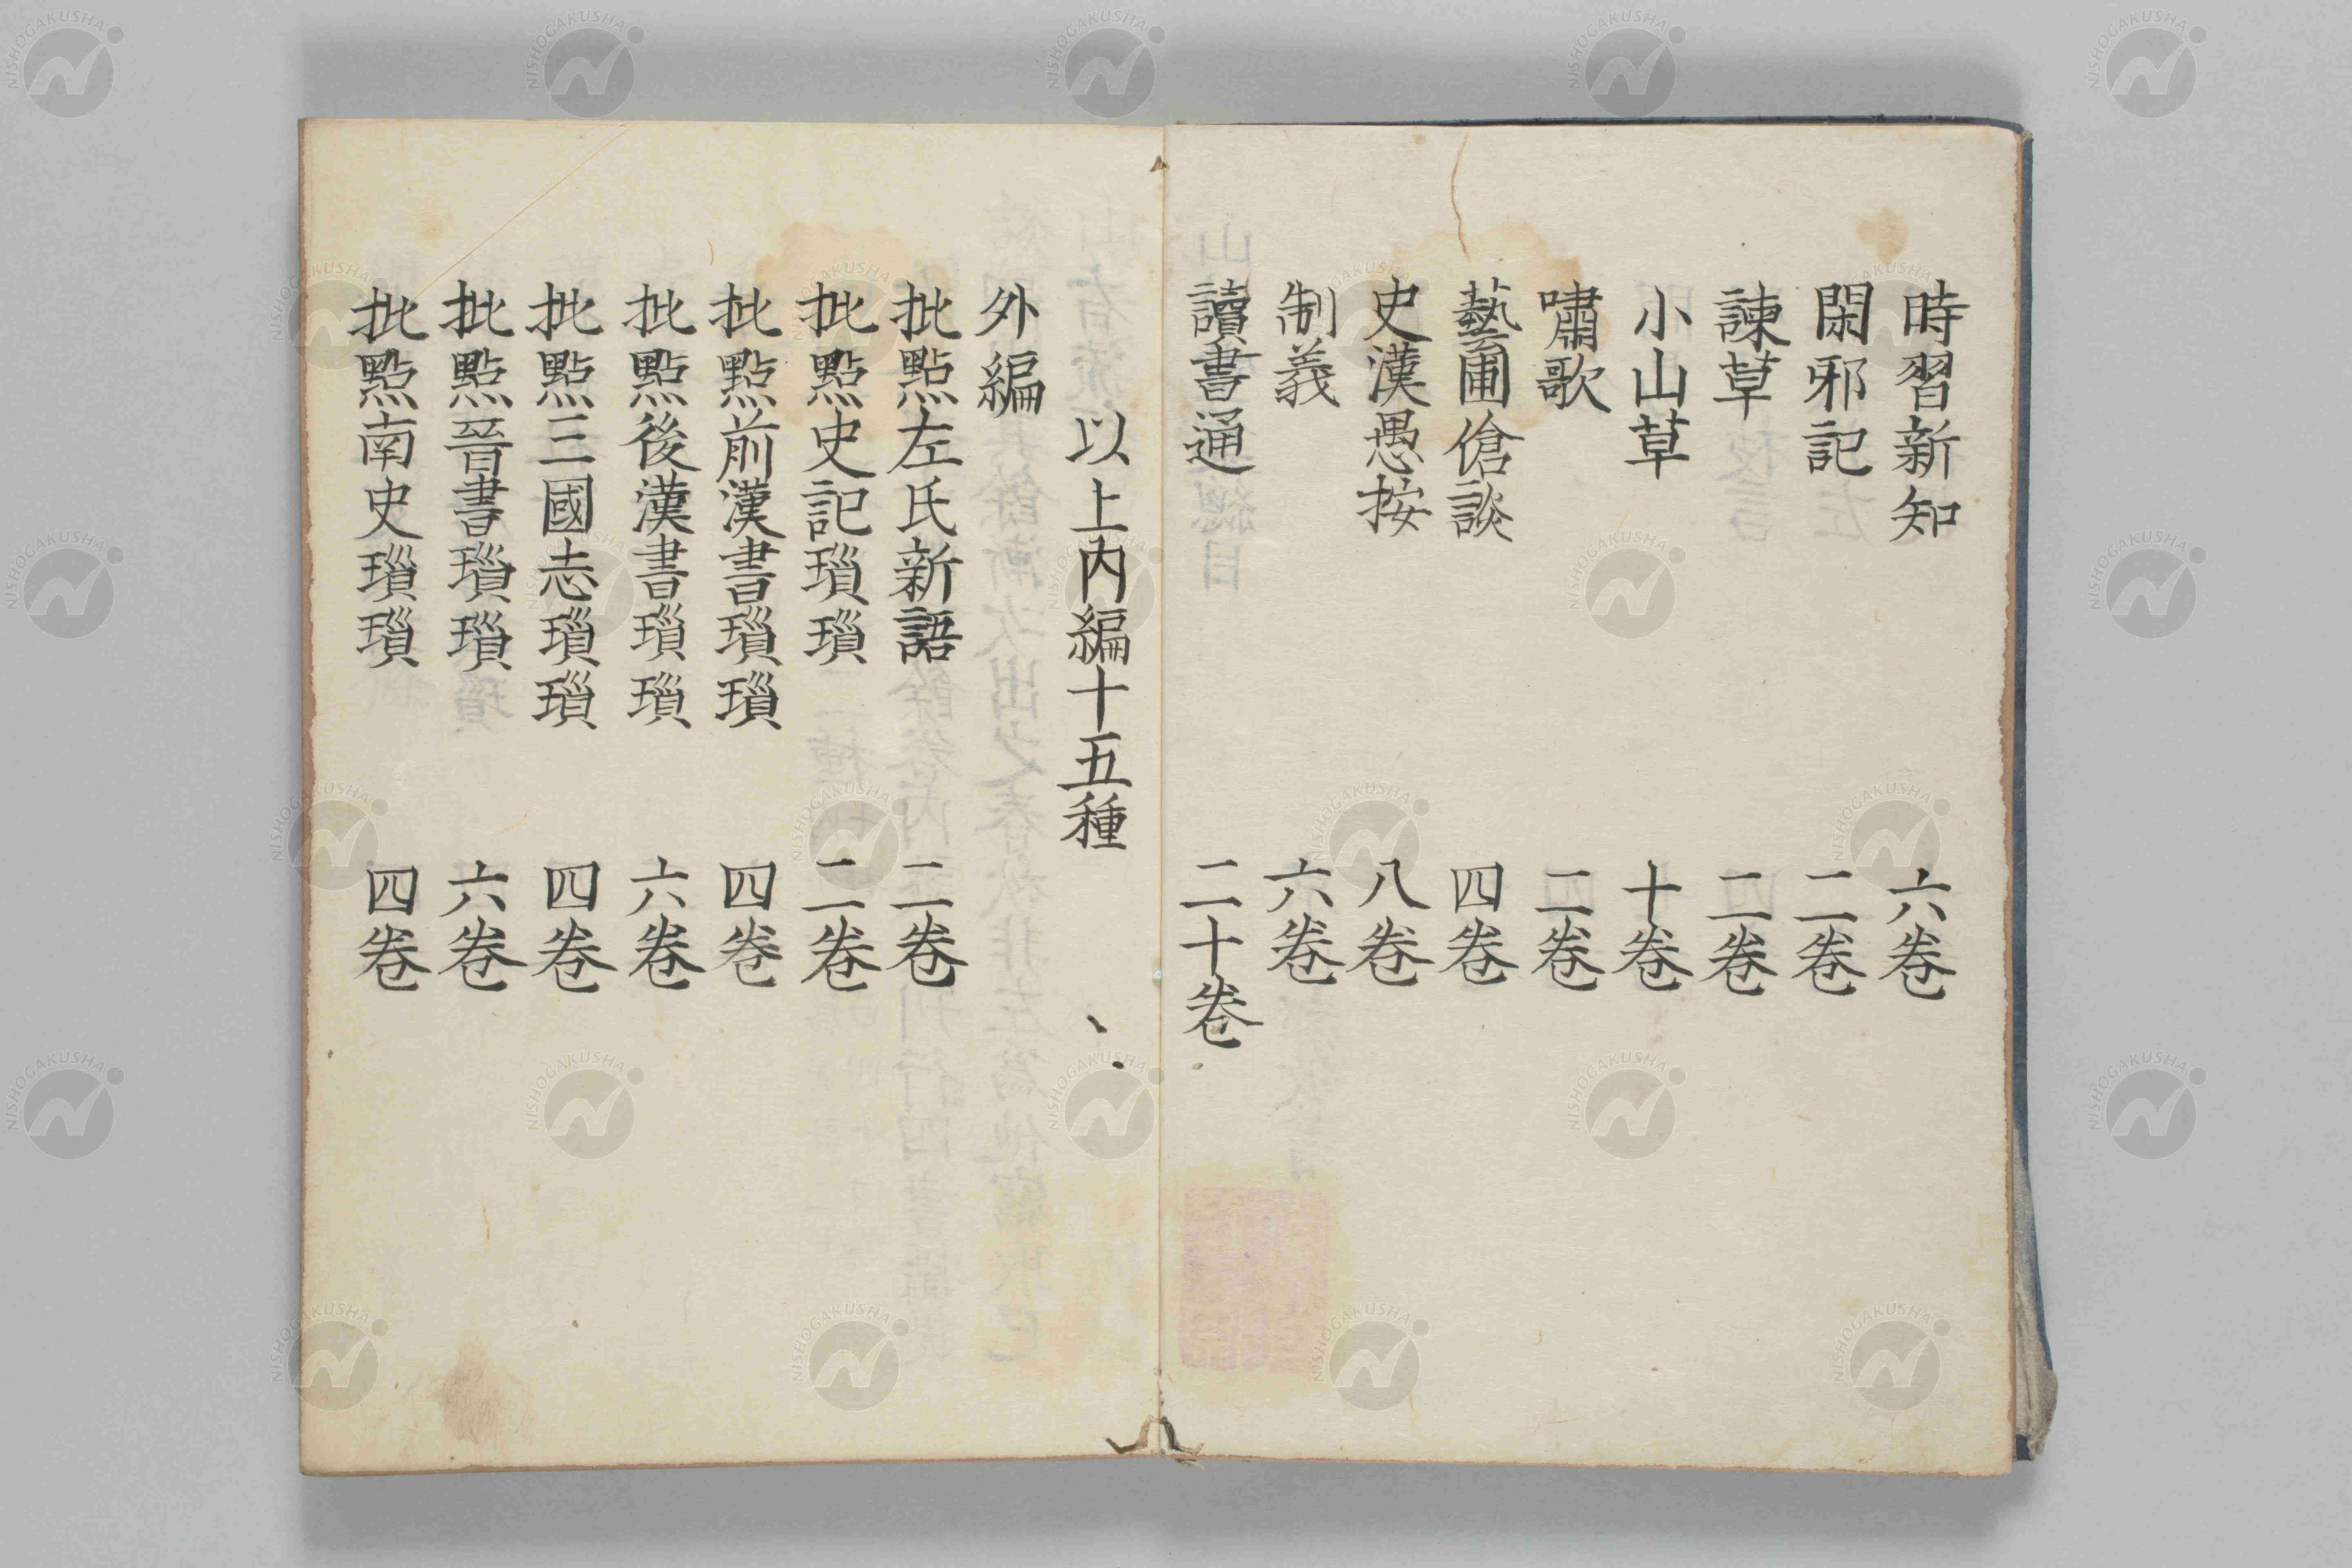 時習新知 六卷
閑邪記 二卷
諫草 二卷
小山草 十卷
嘯歌 二卷
藝圃傖談 四卷
史漢愚按 八卷
制義 六卷
讀書通 二十卷
以上內編十五種
外編
批點左氏新語 二卷
批點史記瑣瑣 二卷
批點前漢書瑣瑣 四卷
批點後漢書瑣瑣 六卷
批點三國志瑣瑣 四卷
批點晉書瑣瑣 六卷
批點南史瑣瑣 四卷
NISHOGAKUSHA